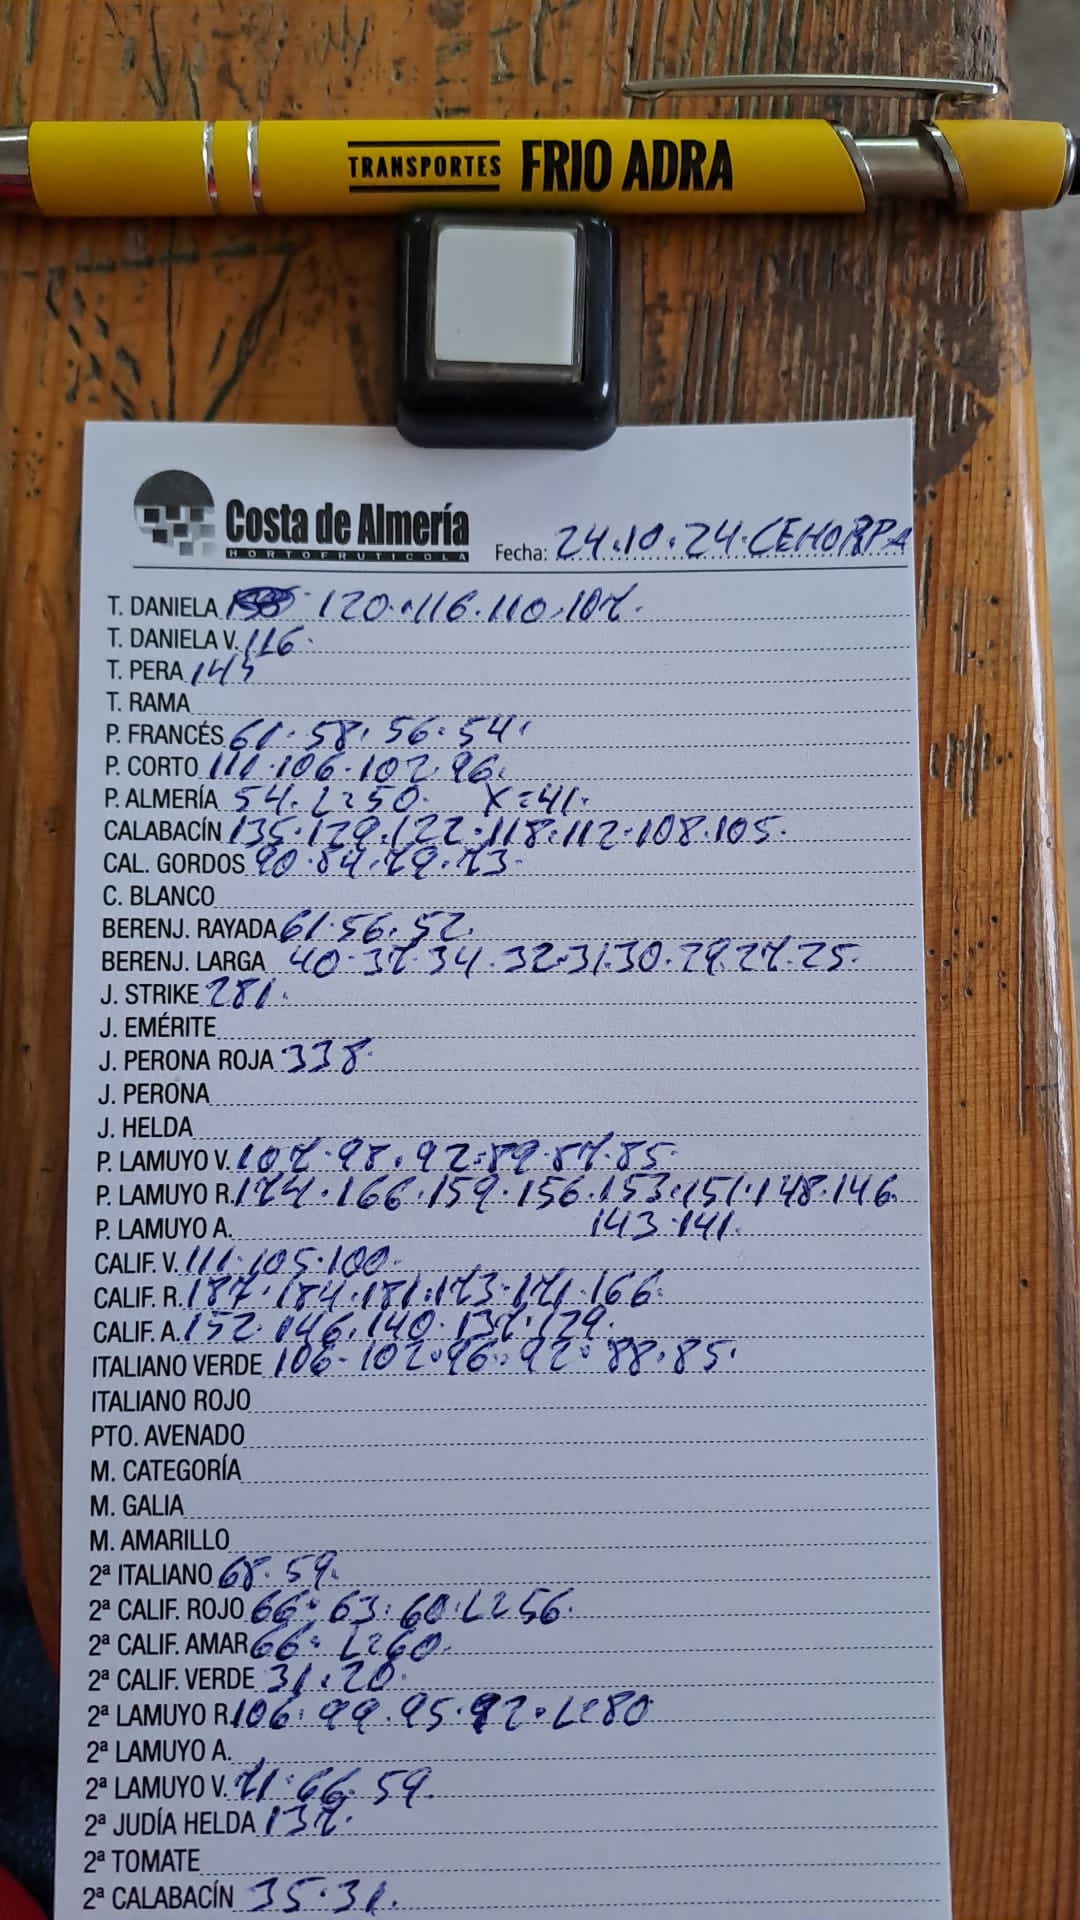 TRANSPORTES FRIO ADRA
Costa de Almería
HORTOFRUTICOLA
Fecha: 24.10.24.CEHORPA
T. DANIELA 120.116.110.107.
T. DANIELA V. 116.
T. PERA 145
T. RAMA
P. FRANCÉS 61.58.56.54.
P. CORTO 111.106.102.96.
P. ALMERÍA 54.L=50. X=41.
CALABACÍN 135.129.122.118.112.108.105.
CAL. GORDOS 90.84.79.73.
C. BLANCO
BERENJ. RAYADA 61.56.52.
BERENJ. LARGA 40.37.34.32.31.30.29.27.25.
J. STRIKE 281.
J. EMÉRITE
J. PERONA ROJA 338.
J. PERONA
J. HELDA
P. LAMUYO V. 107.98.92.89.87.85.
P. LAMUYO R. 174.166.159.156.153.151.148.146.
P. LAMUYO A. 143.141.
CALIF. V. 111.105.100.
CALIF. R. 187.184.181.173.171.166.
CALIF. A. 152.146.140.137.129.
ITALIANO VERDE 106.102.96.92.88.85.
ITALIANO ROJO
PTO. AVENADO
M. CATEGORÍA
M. GALIA
M. AMARILLO
2ª ITALIANO 68.59.
2ª CALIF. ROJO 66.63.60.L=56.
2ª CALIF. AMAR 66.L=60.
2ª CALIF. VERDE 31.20.
2ª LAMUYO R. 106.99.95.92.L=80
2ª LAMUYO A.
2ª LAMUYO V. 71.66.59.
2ª JUDÍA HELDA 137.
2ª TOMATE
2ª CALABACÍN 35.31.